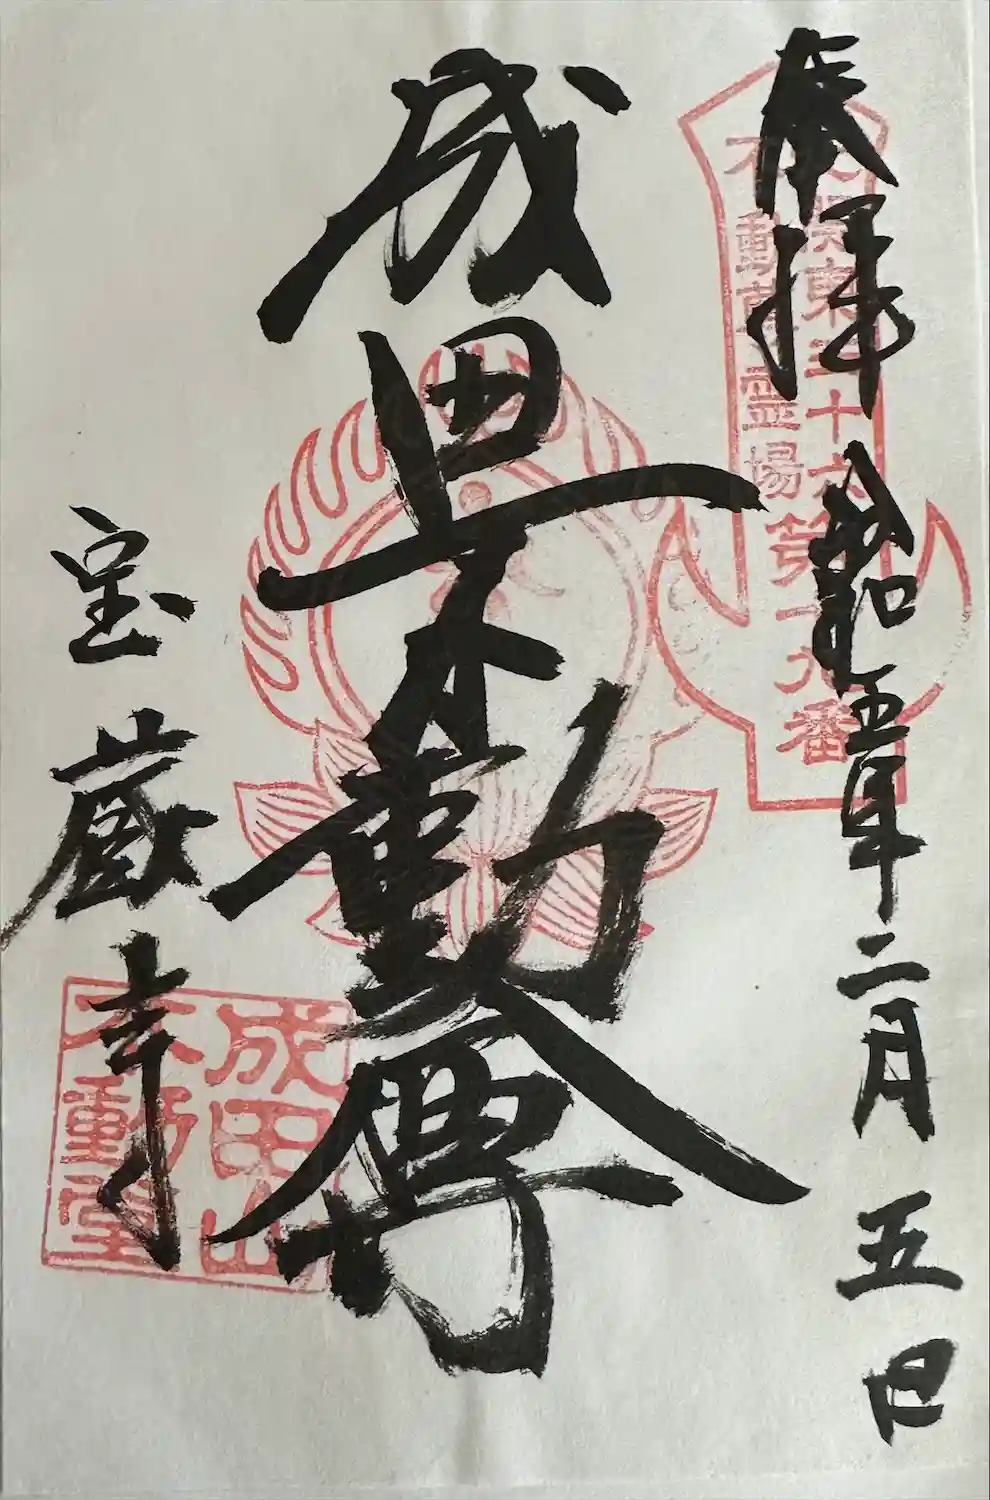 奉拝 令和五年二月五日
北関東三十六
不動尊霊場
第十九番
成田不動尊
宝蔵寺
成田山
不動堂